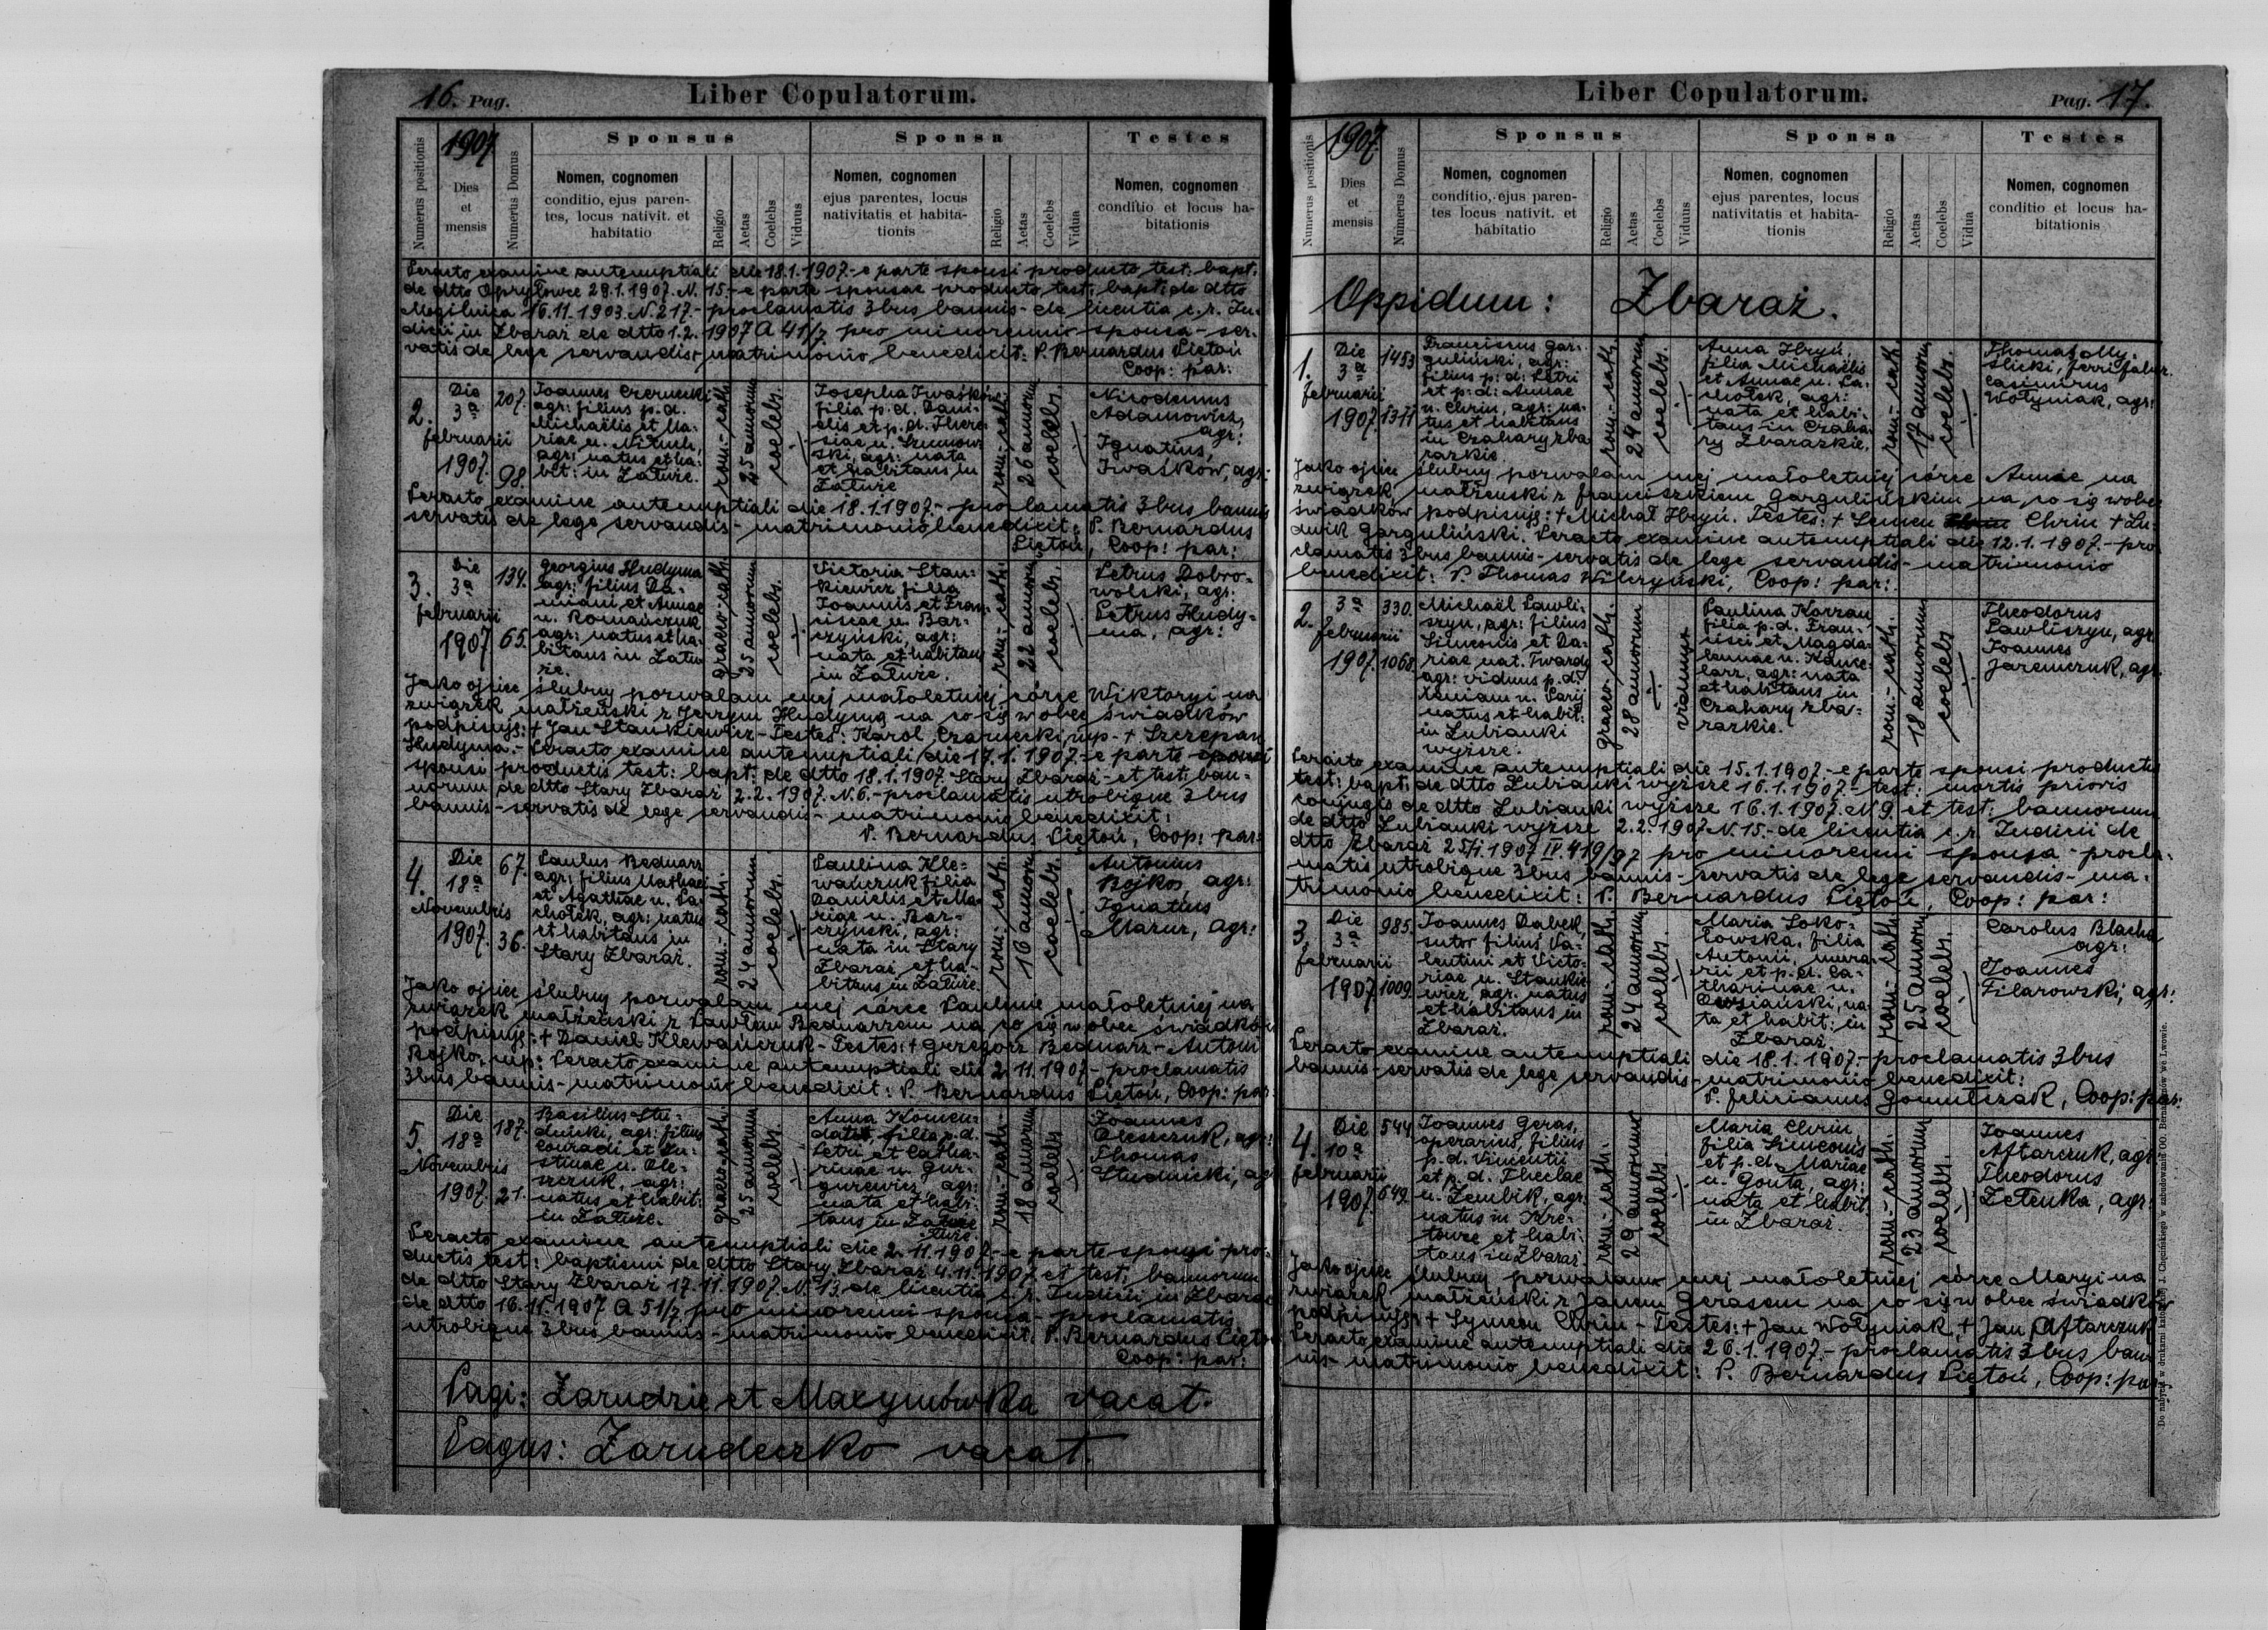 16. Pag.
Liber Copulatorum.
Numerus positionis
1907
Dies
et
mensis
Numerus Domus
Sponsus
Nomen, cognomen
conditio, ejus paren-
tes, locus nativit. et
habitatio
Religio
Aetas
Coelebs
Viduus
Sponsa
Nomen, cognomen
ejus parentes, locus
nativitatis et habita-
tionis
Religio
Aetas
Coelebs
Vidua
Testes
Nomen, cognomen
conditio et locus ha-
bitationis
Peracto examine antenuptiali die 18.1.1907.- e parte sponsi producto test: bapt:
de dtto Opryłowce 29.1.1907. N. 15.- e parte sponsae producto test: bapt: de dtto
Mogilnica 16.11.1903. N. 217.- proclamatis 3bus bannis - de licentia c.r. Ju-
dicii in Zbaraż de dtto 1.2. 1907 A 41/7 pro minorenni sponsa - ser-
vatis de lege servandis - matrimonio benedixit: P. Bernardus Piętoń
Coop: par:
2.
Die
3ª
februarii
1907.
207.
98.
Joannes Czernecki
agr: filius p.d.
Michaëlis et Ma-
riae n.
agr: natus et ha-
bit: in Załuże.
rom:-cath.
25 annorum
coelebs.
Josepha Iwaśków
filia p.d. Dani-
elis et p.d. There-
siae n.
ski, agr: nata
et habitans in
Załuże
rom:-cath.
26 annorum
coelebs.
Nicodemus
Adamowicz,
agr:
Ignatius,
Iwaśków, agr:
Peracto examine antenuptiali die 18.1.1907.- proclamatis 3bus bannis
servatis de lege servandis - matrimonio benedixit: P. Bernardus
Piętoń, Coop: par:
3.
Die
3ª
februarii
1907
134.
65.
Georgius Hudyma
agr: filius Da-
miani et Annae
n. Romańczuk
agr: natus et ha-
bitans in Zału-
że.
graeco-cath.
25 annorum
coelebs.
Victoria Stan-
kiewicz filia
Joannis et Fran-
ciscae n. Bar-
czyński, agr:
nata et habitans
in Załuże.
rom:-cath.
22 annorum
coelebs.
Petrus Dobro-
wolski, agr:
Petrus Hudy-
ma, agr:
Jako ojciec ślubny pozwalam mej małoletniej córce Wiktoryi na
związek małżeński z Jerzym Hudymą na co się wobec świadków
podpisuję: + Jan Stankiewicz - Testes: Karol Czarnecki mp. + Szczepan
Hudyma.- Peracto examine antenuptiali die 17.1.1907.- e parte
sponsi productis test: bapt: de dtto 18.1.1907. Stary Zbaraż - et test: ban-
norum de dtto Stary Zbaraż 2.2.1907. N. 6.- proclamatis utrobique 3bus
bannis - servatis de lege servandis - matrimonio benedixit:
P. Bernardus Piętoń, Coop: par:
4.
Die
18ª
Novembris
1907.
67.
36.
Paulus Bednarz
agr: filius Mathaei
et Agathae n. Pa-
chołek, agr: natus
et habitans in
Stary Zbaraż.
rom:-cath.
24 annorum
coelebs.
Paulina Kle-
wańczuk filia
Danielis et Ma-
riae n. Bar-
czyński, agr:
nata in Stary
Zbaraż et ha-
bitans in Załuże.
rom:-cath.
16 annorum
coelebs.
Antonius
Bojko, agr:
Ignatius
Mazur, agr:
Jako ojciec ślubny pozwalam mej córce Paulinie małoletniej na
związek małżeński z Pawłem Bednarzem na co się wobec świadków
podpisuję: + Daniel Klewańczuk - Testes: + Grzegorz Bednarz - Antoni
Bojko, mp: Peracto examine antenuptiali die 2.11.1907.- proclamatis
3bus bannis - matrimonio benedixit: P. Bernardus Piętoń, Coop: par:
5.
Die
18ª
Novembris
1907.
187.
21.
Basilius Stu-
dnicki, agr: filius
Conradi et Ju-
stinae n. Ole-
szczuk, agr:
natus et habit:
in Załuże.
graeco-cath.
25 annorum
coelebs
Anna Komen-
dat filia p.d.
Petri et Catha-
rinae n. Gur-
gurewicz, agr:
nata et habi-
tans in Załuże
rom:-cath.
18 annorum
coelebs
Joannes
Oleszczuk, agr:
Thomas
Studnicki, agr
Peracto examine antenuptiali die 2.11.1907.- e parte sponsi pro-
ductis test: baptismi de dtto Stary Zbaraż 4.11.1907. et test: bannorum
de dtto Stary Zbaraż 17.11.1907. N. 13. de licentia c.r. Judicii in Zbaraż
de dtto 16.11.1907 A 51/7 pro minorenni sponsa - proclamatis
utrobique 3bus bannis - matrimonio benedixit: P. Bernardus Piętoń
Coop: par:
Pagi: Zarudzie et Maxymówka vacat.
Pagus: Zarudeczko vacat.
Liber Copulatorum.
Pag. 17.
Numerus positionis
1907.
Dies
et
mensis
Numerus Domus
Sponsus
Nomen, cognomen
conditio, ejus paren-
tes locus nativit. et
habitatio
Religio
Aetas
Coelebs
Viduus
Sponsa
Nomen, cognomen
ejus parentes, locus
nativitatis et habita-
tionis
Religio
Aetas
Coelebs
Vidua
Testes
Nomen, cognomen
conditio et locus ha-
bitationis
Oppidum: Zbaraż.
1.
Die
3ª
februarii
1907.
1453
1311
Franciscus Gar-
guliński, agr:
filius p.d. Petri
et p.d. Annae
n. Chrin, agr: na-
tus et habitans
in Czahary zba-
razkie.
rom:-cath.
24 annorum
coelebs.
Anna Hryń,
filia Michaëlis
et Annae n. Pa-
chołek, agr:
nata et habi-
tans in Czaha-
ry Zbarazkie.
rom:-cath.
17 annorum
coelebs.
Thomas My-
ślicki, ferri faber.
Casimirus
Wołyniak, agr:
Jako ojciec ślubny pozwalam mej małoletniej córce Annie na
związek małżeński z Franciszkiem Gargulińskim na co się wobec
świadków podpisuję: + Michał Hryń. Testes: + Semen Chrin + Lu-
dwik Garguliński. Peracto examine antenuptiali die 12.1.1907.- pro-
clamatis 3bus bannis - servatis de lege servandis - matrimonio
benedixit: P. Thomas Wilczyński, Coop: par:
2.
3ª
februarii
1907.
330.
1068.
Michaël Pawli-
szyn, agr: filius
Simeonis et Da-
riae nat. Twardy
agr: viduus p.d.
Xeniam n. Paryj
natus et habit:
in Lubianki
wyższe.
graeco-cath.
28 annorum
viduus
Paulina Korzan
filia p.d. Fran-
cisci et Magda-
lenae n. Kance-
larz, agr: nata
et habitans in
Czahary zba-
razkie.
rom:-cath.
18 annorum
coelebs
Theodorus
Pawliszyn, agr
Joannes
Jaremczuk, agr.
Peracto examine antenuptiali die 15.1.1907.- e parte sponsi productis
test: bapt: de dtto Lubianki wyższe 16.1.1907.- test: mortis prioris
conjugis de dtto Lubianki wyższe 16.1.1907. N 9. et test: bannorum
de dtto Lubianki wyższe 2.2.1907. N. 15.- de licentia c.r. Judicii de
dtto Zbaraż 25/1.1907 IV. 419/97 pro minorenni sponsa - procla-
matis utrobique 3bus bannis - servatis de lege servandis - ma-
trimonio benedixit: P. Bernardus Piętoń, Coop: par:
3.
Die
3ª
februarii
1907.
985.
1009.
Joannes Dabek,
sutor filius Va-
lentini et Victo-
riae n. Stankie-
wicz, agr: natus
et habitans in
Zbaraż.
rom:-cath.
24 annorum
coelebs.
Maria Soko-
łowska, filia
Antonii, mura-
rii et p.d. Ca-
tharinae n.
na-
ta et habit: in
Zbaraż.
rom:-cath.
25 annorum
coelebs.
Carolus Blacha
agr:
Joannes
Filarowski, agr:
Peracto examine antenuptiali die 18.1.1907.- proclamatis 3bus
bannis - servatis de lege servandis - matrimonio benedixit:
P. Felicianus Gomulczak, Coop: par:
4.
Die
10ª
februarii
1907.
544
649.
Joannes Geras,
operarius, filius
p.d. Vincentii
et p.d. Theclae
n. Zembik, agr:
natus in Kre-
towce et habi-
tans in Zbaraż.
rom:-cath.
29 annorum
coelebs.
Maria Chrin
filia Simeonis
et p.d. Mariae
n. Gonta, agr:
nata et habit
in Zbaraż.
rom:-cath.
23 annorum
coelebs.
Joannes
Aftarczuk, agr
Theodorus
Zełenka, agr:
Jako ojciec ślubny pozwalam mej małoletniej córce Maryi na
związek małżeński z Janem Gerasem na co się wobec świadków
podpisuję: + Symeon Chrin - Testes: + Jan Wołyniak, + Jan Aftarczuk
Peracto examine antenuptiali die 26.1.1907.- proclamatis 3bus ban-
nis - matrimonio benedixit: P. Bernardus Piętoń, Coop: par:
Do nabycia w drukarni katolickiej J. Chęcińskiego w zabudowaniu OO. Bernardynów we Lwowie.